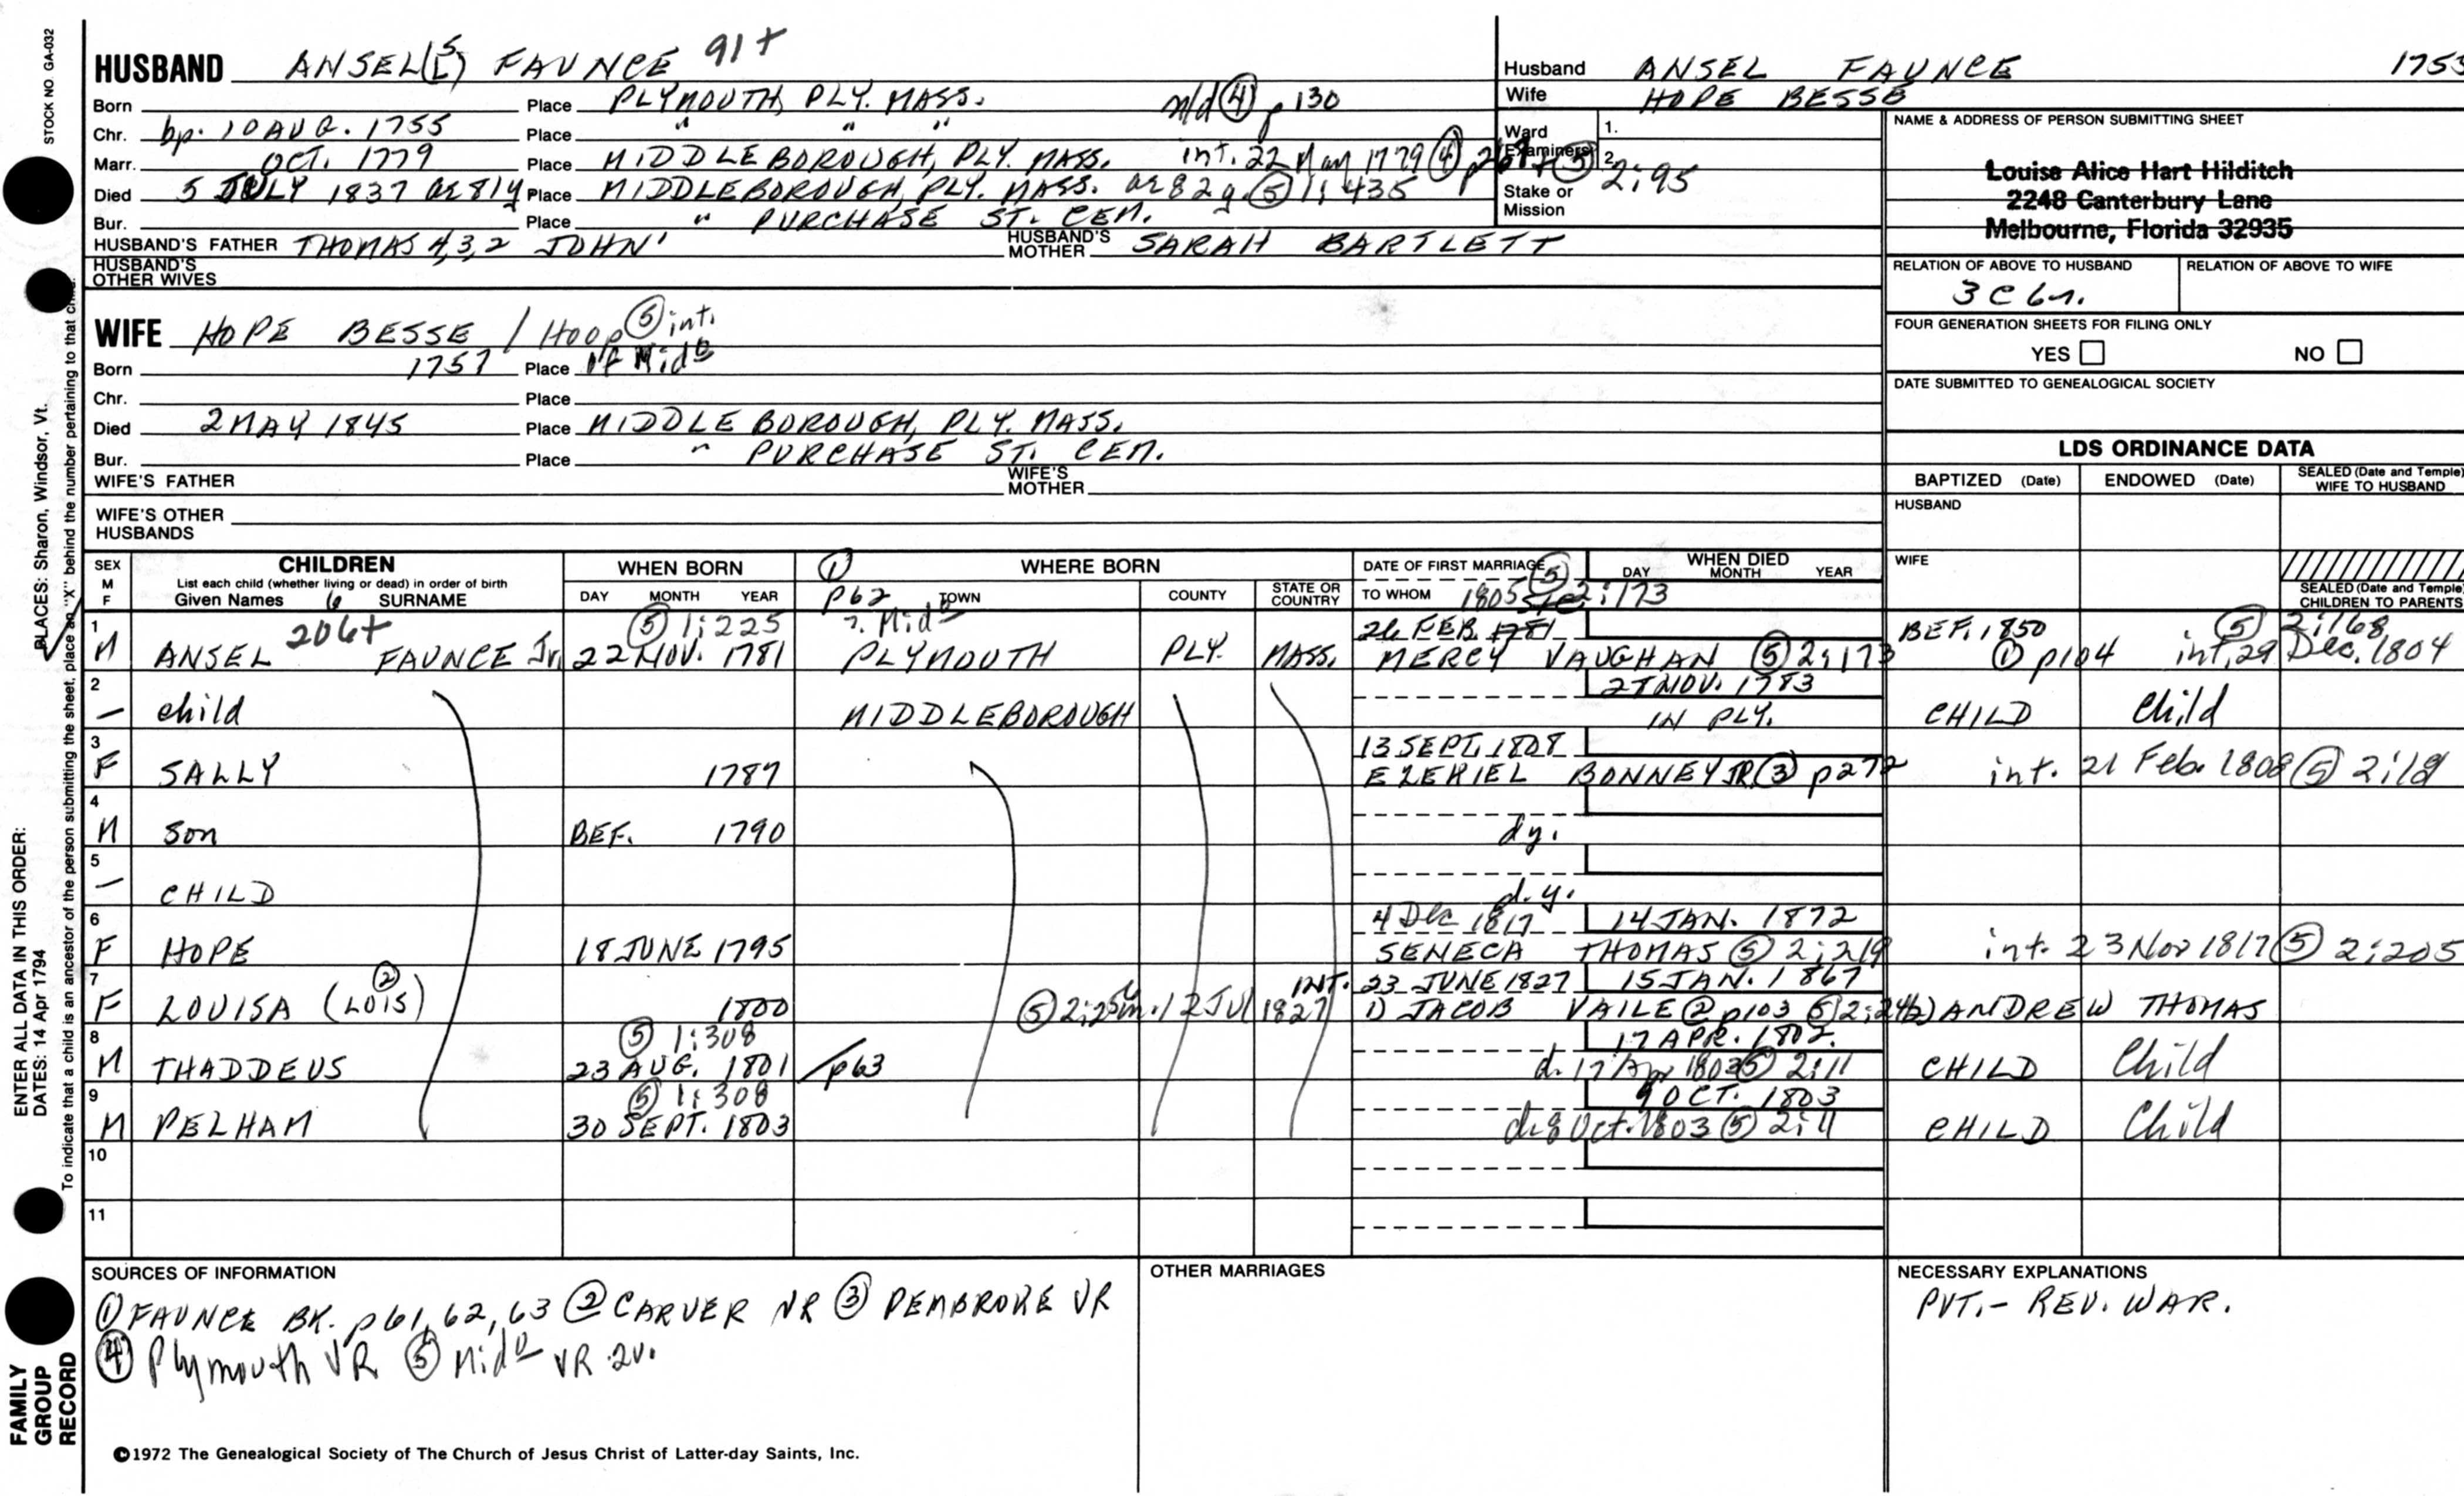 STOCK NO. GA-032
HUSBAND ANSEL(L) 5 FAUNCE 91+
Born Place PLYMOUTH, PLY. MASS. n/d ④ p 130
Chr. bp. 10 AUG. 1755 Place " " "
Marr. OCT. 1779 Place MIDDLEBOROUGH, PLY. MASS. int. 22 May 1779 ④ ⑤ 2:95
Died 5 JULY 1837 ae 81y Place MIDDLEBOROUGH, PLY. MASS. ae 82y ⑤ 1:435
Bur. Place " PURCHASE ST. CEM.
HUSBAND'S FATHER THOMAS 4,3,2 JOHN 1 HUSBAND'S MOTHER SARAH BARTLETT
HUSBAND'S OTHER WIVES
WIFE HOPE BESSE / Hoop ⑤ int.
Born 1757 Place of Mid o
Chr. Place
Died 2 MAY 1845 Place MIDDLEBOROUGH, PLY. MASS.
Bur. Place " PURCHASE ST. CEM.
WIFE'S FATHER WIFE'S MOTHER
WIFE'S OTHER HUSBANDS
Husband ANSEL FAUNCE 1755
Wife HOPE BESSE
Ward Examiners 1.
2.
Stake or Mission
NAME & ADDRESS OF PERSON SUBMITTING SHEET
Louise Alice Hart Hilditch
2248 Canterbury Lane
Melbourne, Florida 32935
RELATION OF ABOVE TO HUSBAND RELATION OF ABOVE TO WIFE
3 c 6r.
FOUR GENERATION SHEETS FOR FILING ONLY
YES NO
DATE SUBMITTED TO GENEALOGICAL SOCIETY
LDS ORDINANCE DATA
BAPTIZED (Date) ENDOWED (Date) SEALED (Date and Temple) WIFE TO HUSBAND
HUSBAND
WIFE
SEALED (Date and Temple) CHILDREN TO PARENTS
SEX M F CHILDREN WHEN BORN ① WHERE BORN DATE OF FIRST MARRIAGE ⑤ WHEN DIED
List each child (whether living or dead) in order of birth
Given Names 6 SURNAME DAY MONTH YEAR p62 TOWN COUNTY STATE OR COUNTRY TO WHOM 1805 2:173 DAY MONTH YEAR
1 206+ ⑤ 1:225 Mid o 26 FEB. 1781 BEF. 1850 ⑤ 2:168
M ANSEL FAUNCE Jr. 22 NOV. 1781 PLYMOUTH PLY. MASS. MERCY VAUGHAN ⑤ 2:173 ① p104 int. 29 Dec. 1804
2 27 NOV. 1783
— child MIDDLEBOROUGH IN PLY. CHILD Child
3 13 SEPT. 1808
F SALLY 1787 EZEKIEL BONNEY JR. ③ p272 int. 21 Feb. 1808 ⑤ 2:18
4
M Son BEF. 1790 dy.
5
— CHILD d.y.
6 4 Dec 1817 14 JAN. 1872
F HOPE 18 JUNE 1795 SENECA THOMAS ⑤ 2:219 int. 23 Nov 1817 ⑤ 2:205
7 ② INT. 23 JUNE 1827 15 JAN. 1867
F LOUISA (LOIS) 1800 ⑤ m. 12 Jul 1827 1) JACOB VAILE ② p103 ⑤ 2) ANDREW THOMAS
8 ⑤ 1:308 17 APR. 1802.
M THADDEUS 23 AUG. 1801 p63 d. 17 Apr 1803 ⑤ 2:11 CHILD Child
9 ⑤ 1:308 9 OCT. 1803
M PELHAM 30 SEPT. 1803 d. 8 Oct. 1803 ⑤ 2:11 CHILD Child
10
11
SOURCES OF INFORMATION
① FAUNCE BK. p 61, 62, 63 ② CARVER VR ③ PEMBROKE VR
④ Plymouth VR ⑤ Mid o VR 2v.
OTHER MARRIAGES
NECESSARY EXPLANATIONS
PVT. - REV. WAR.
©1972 The Genealogical Society of The Church of Jesus Christ of Latter-day Saints, Inc.
ENTER ALL DATA IN THIS ORDER:
DATES: 14 Apr 1794 PLACES: Sharon, Windsor, Vt.
To indicate that a child is an ancestor of the person submitting the sheet, place an "X" behind the number pertaining to that child.
FAMILY GROUP RECORD